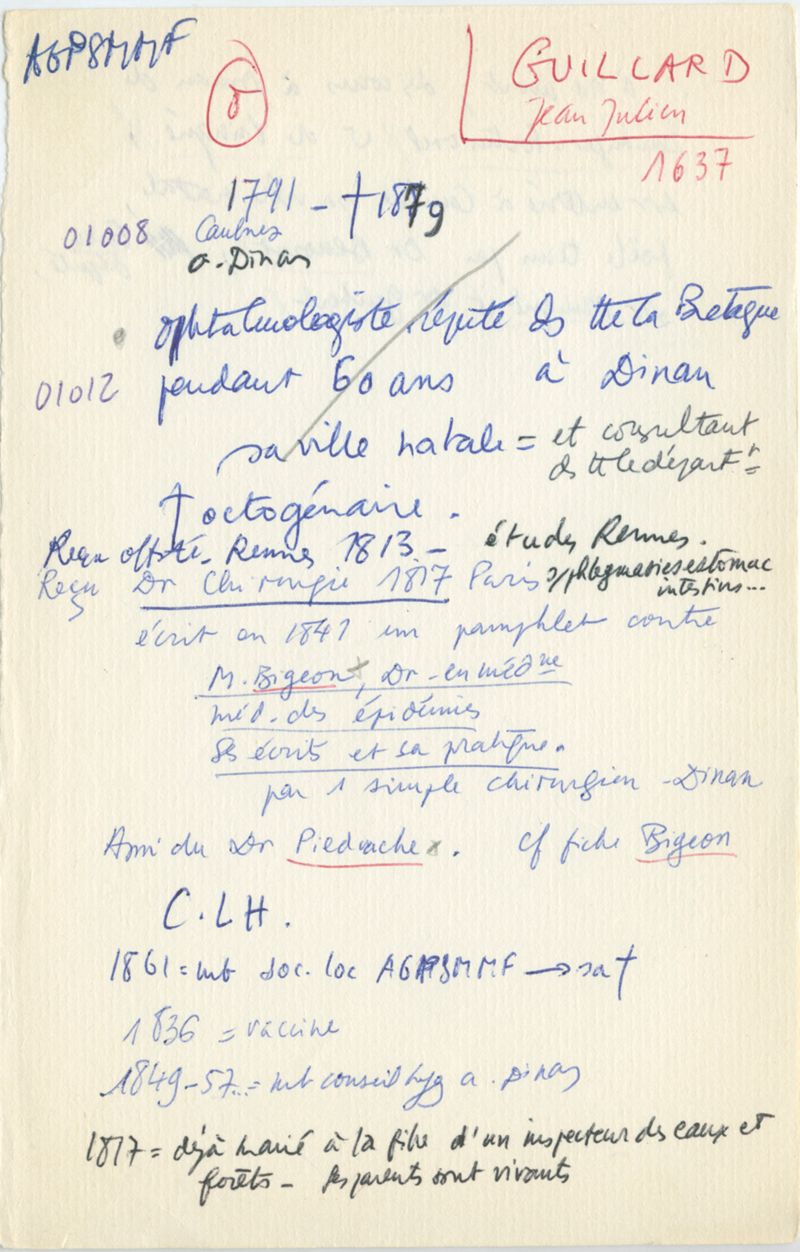 AGPSMMF
GUILLARD
Jean Julien
1637
1791 - † 1879
01008 Caulnes
a. Dinan
ophtalmologiste réputé ds tte la Bretagne
01012 pendant 60 ans à Dinan
sa ville natale = et consultant
ds tt le départt =
† octogénaire.
Reçu off. Rennes 1813 - études Rennes.
Reçu Dr Chirurgie 1817 Paris s/phlegmasies estomac
intestins...
écrit en 1841 un pamphlet contre
M. Bigeon, Dr-en médne
méd. des épidémies
Ses écrits et sa pratique.
par 1 simple chirurgien - Dinan
Ami du Dr Piedvache x. cf fiche Bigeon
C.LH.
1861 = mb soc. loc AGPSMMF → sa †
1836 = vaccine
1849-57... = mb conseil hyg a. Dinan
1817 = déjà marié à la fille d'un inspecteur des eaux et
forêts - Ses parents sont vivants